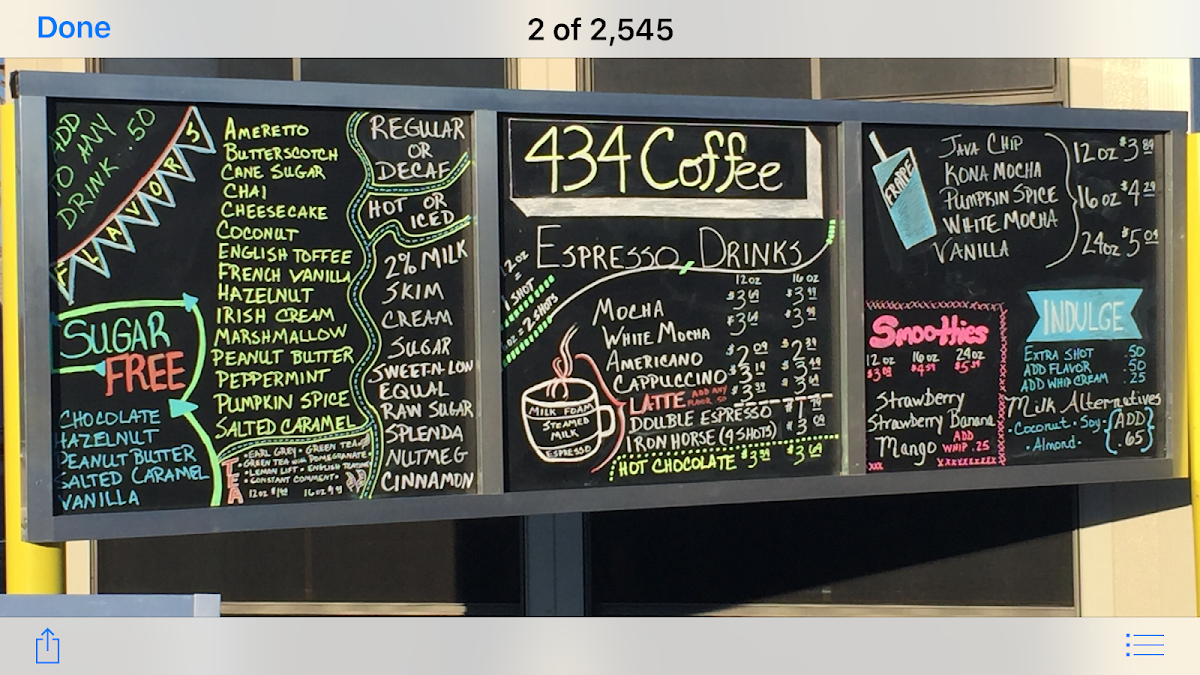 Done
2 of 2,545
ADD
TO ANY
DRINK .50
FLAVORS
SUGAR
FREE
CHOCOLATE
HAZELNUT
PEANUT BUTTER
SALTED CARAMEL
VANILLA
AMERETTO
BUTTERSCOTCH
CANE SUGAR
CHAI
CHEESECAKE
COCONUT
ENGLISH TOFFEE
FRENCH VANILLA
HAZELNUT
IRISH CREAM
MARSHMALLOW
PEANUT BUTTER
PEPPERMINT
PUMPKIN SPICE
SALTED CARAMEL
TEA
• EARL GREY • GREEN TEA •
• GREEN TEA WITH POMEGRANATE •
• LEMON LIFT • ENGLISH TEATIME
• CONSTANT COMMENT •
12oz 16oz
REGULAR
OR
DECAF
HOT OR
ICED
2% MILK
SKIM
CREAM
SUGAR
SWEET-N-LOW
EQUAL
RAW SUGAR
SPLENDA
NUTMEG
CINNAMON
434 Coffee
ESPRESSO DRINKS
12oz
=
1 SHOT
16oz = 2 SHOTS
12oz 16oz
MOCHA $3.69 $3.99
WHITE MOCHA $3.69 $3.99
AMERICANO $2.09 $2.39
CAPPUCCINO $3.19 $3.49
LATTE ADD ANY FLAVOR .50 $3.39 $3.69
DOUBLE ESPRESSO $1.79
IRON HORSE (4 SHOTS) $3.09
HOT CHOCOLATE $3.39 $3.69
MILK FOAM
STEAMED
MILK
ESPRESSO
FRAPPE
JAVA CHIP
KONA MOCHA
PUMPKIN SPICE
WHITE MOCHA
VANILLA
12oz $3.89
16oz $4.29
24oz $5.09
Smoothies
12oz 16oz 24oz
$3.99 $4.59 $5.39
Strawberry
Strawberry Banana
Mango ADD
WHIP .25
INDULGE
EXTRA SHOT .50
ADD FLAVOR .50
ADD WHIP CREAM .25
Milk Alternatives
• Coconut • Soy •
• Almond •
{ADD
.65}